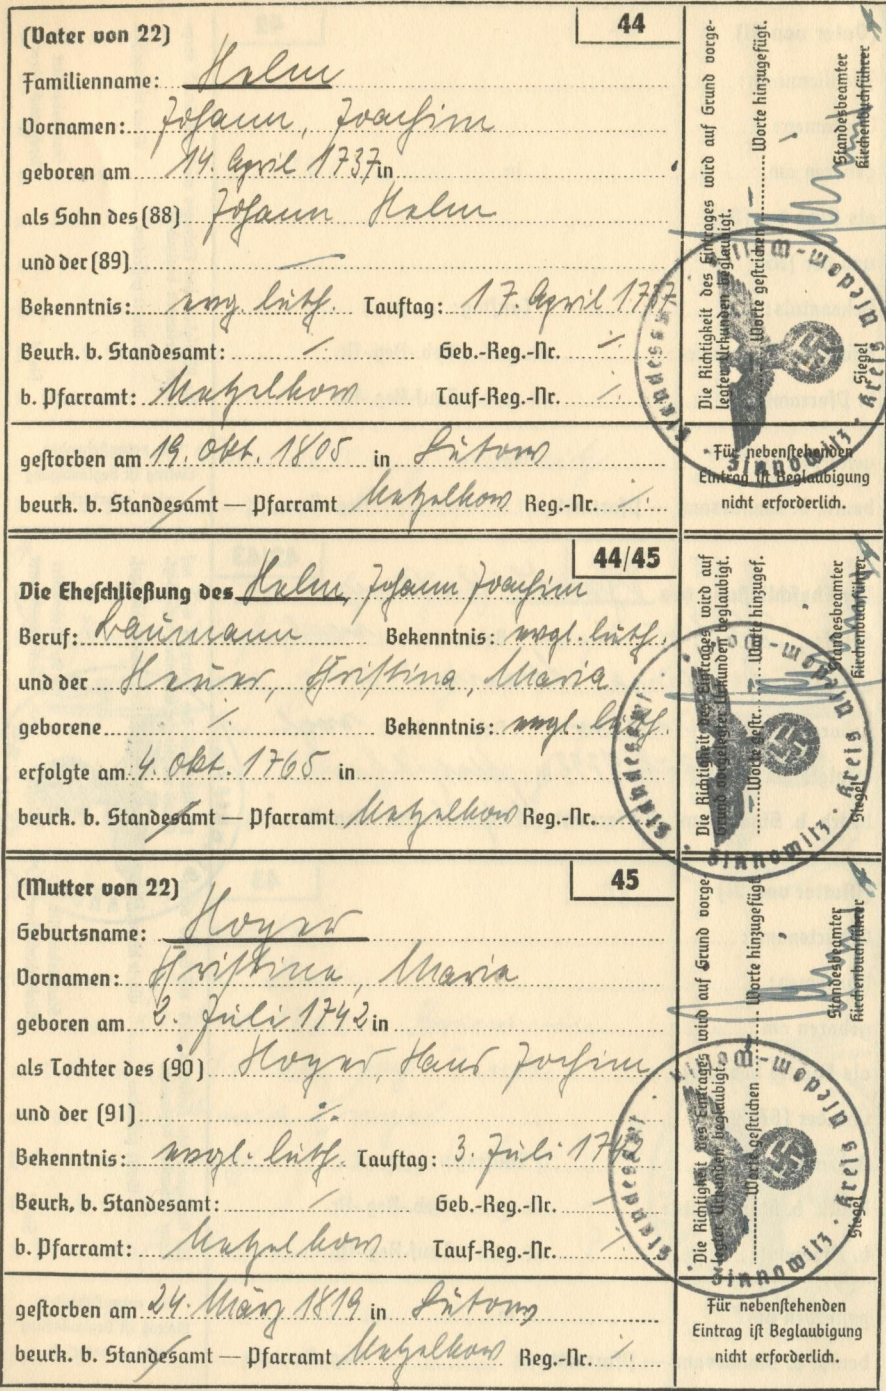 (Vater von 22) 44
Familienname: Helm
Vornamen: Johann, Joachim
geboren am 14. April 1737 in
als Sohn des (88) Johann Helm
und der (89) —
Bekenntnis: evgl. luth. Tauftag: 17. April 1737
Beurk. b. Standesamt: ∕. Geb.-Reg.-Nr. ∕.
b. Pfarramt: Metzelkow Tauf-Reg.-Nr. ∕.
gestorben am 19. Okt. 1805 in Lütow
beurk. b. Standesamt — Pfarramt Metzelkow Reg.-Nr. ∕.
Die Richtigkeit des Eintrages wird auf Grund vorge-
legter Urkunden beglaubigt.
Worte gestrichen — Worte hinzugefügt.
Siegel
Standesbeamter
Kirchenbuchführer
Standesamt
Zinnowitz · Kreis Usedom-Wollin
Für nebenstehenden
Eintrag ist Beglaubigung
nicht erforderlich.
44/45
Die Eheschließung des Helm, Johann Joachim
Beruf: Baumann Bekenntnis: evgl. luth.
und der Heuer, Christina, Maria
geborene ∕. Bekenntnis: evgl. luth.
erfolgte am 4. Okt. 1765 in
beurk. b. Standesamt — Pfarramt Metzelkow Reg.-Nr. ∕.
Die Richtigkeit des Eintrages wird auf
Grund vorgelegter Urkunden beglaubigt.
— Worte gestr. — Worte hinzugef.
Siegel
Standesbeamter
Kirchenbuchführer
Standesamt
Zinnowitz · Kreis Usedom-Wollin
(Mutter von 22) 45
Geburtsname: Hoyer
Vornamen: Christina, Maria
geboren am 2. Juli 1742 in
als Tochter des (90) Hoyer, Hans Jochim
und der (91) ∕.
Bekenntnis: evgl. luth. Tauftag: 3. Juli 1742
Beurk. b. Standesamt: ∕ Geb.-Reg.-Nr. ∕
b. Pfarramt: Metzelkow Tauf-Reg.-Nr. ∕.
gestorben am 24. März 1819 in Lütow
beurk. b. Standesamt — Pfarramt Metzelkow Reg.-Nr. ∕.
Die Richtigkeit des Eintrages wird auf Grund vorge-
legter Urkunden beglaubigt.
Worte gestrichen — Worte hinzugefügt.
Siegel
Standesbeamter
Kirchenbuchführer
Standesamt
Zinnowitz · Kreis Usedom-Wollin
Für nebenstehenden
Eintrag ist Beglaubigung
nicht erforderlich.